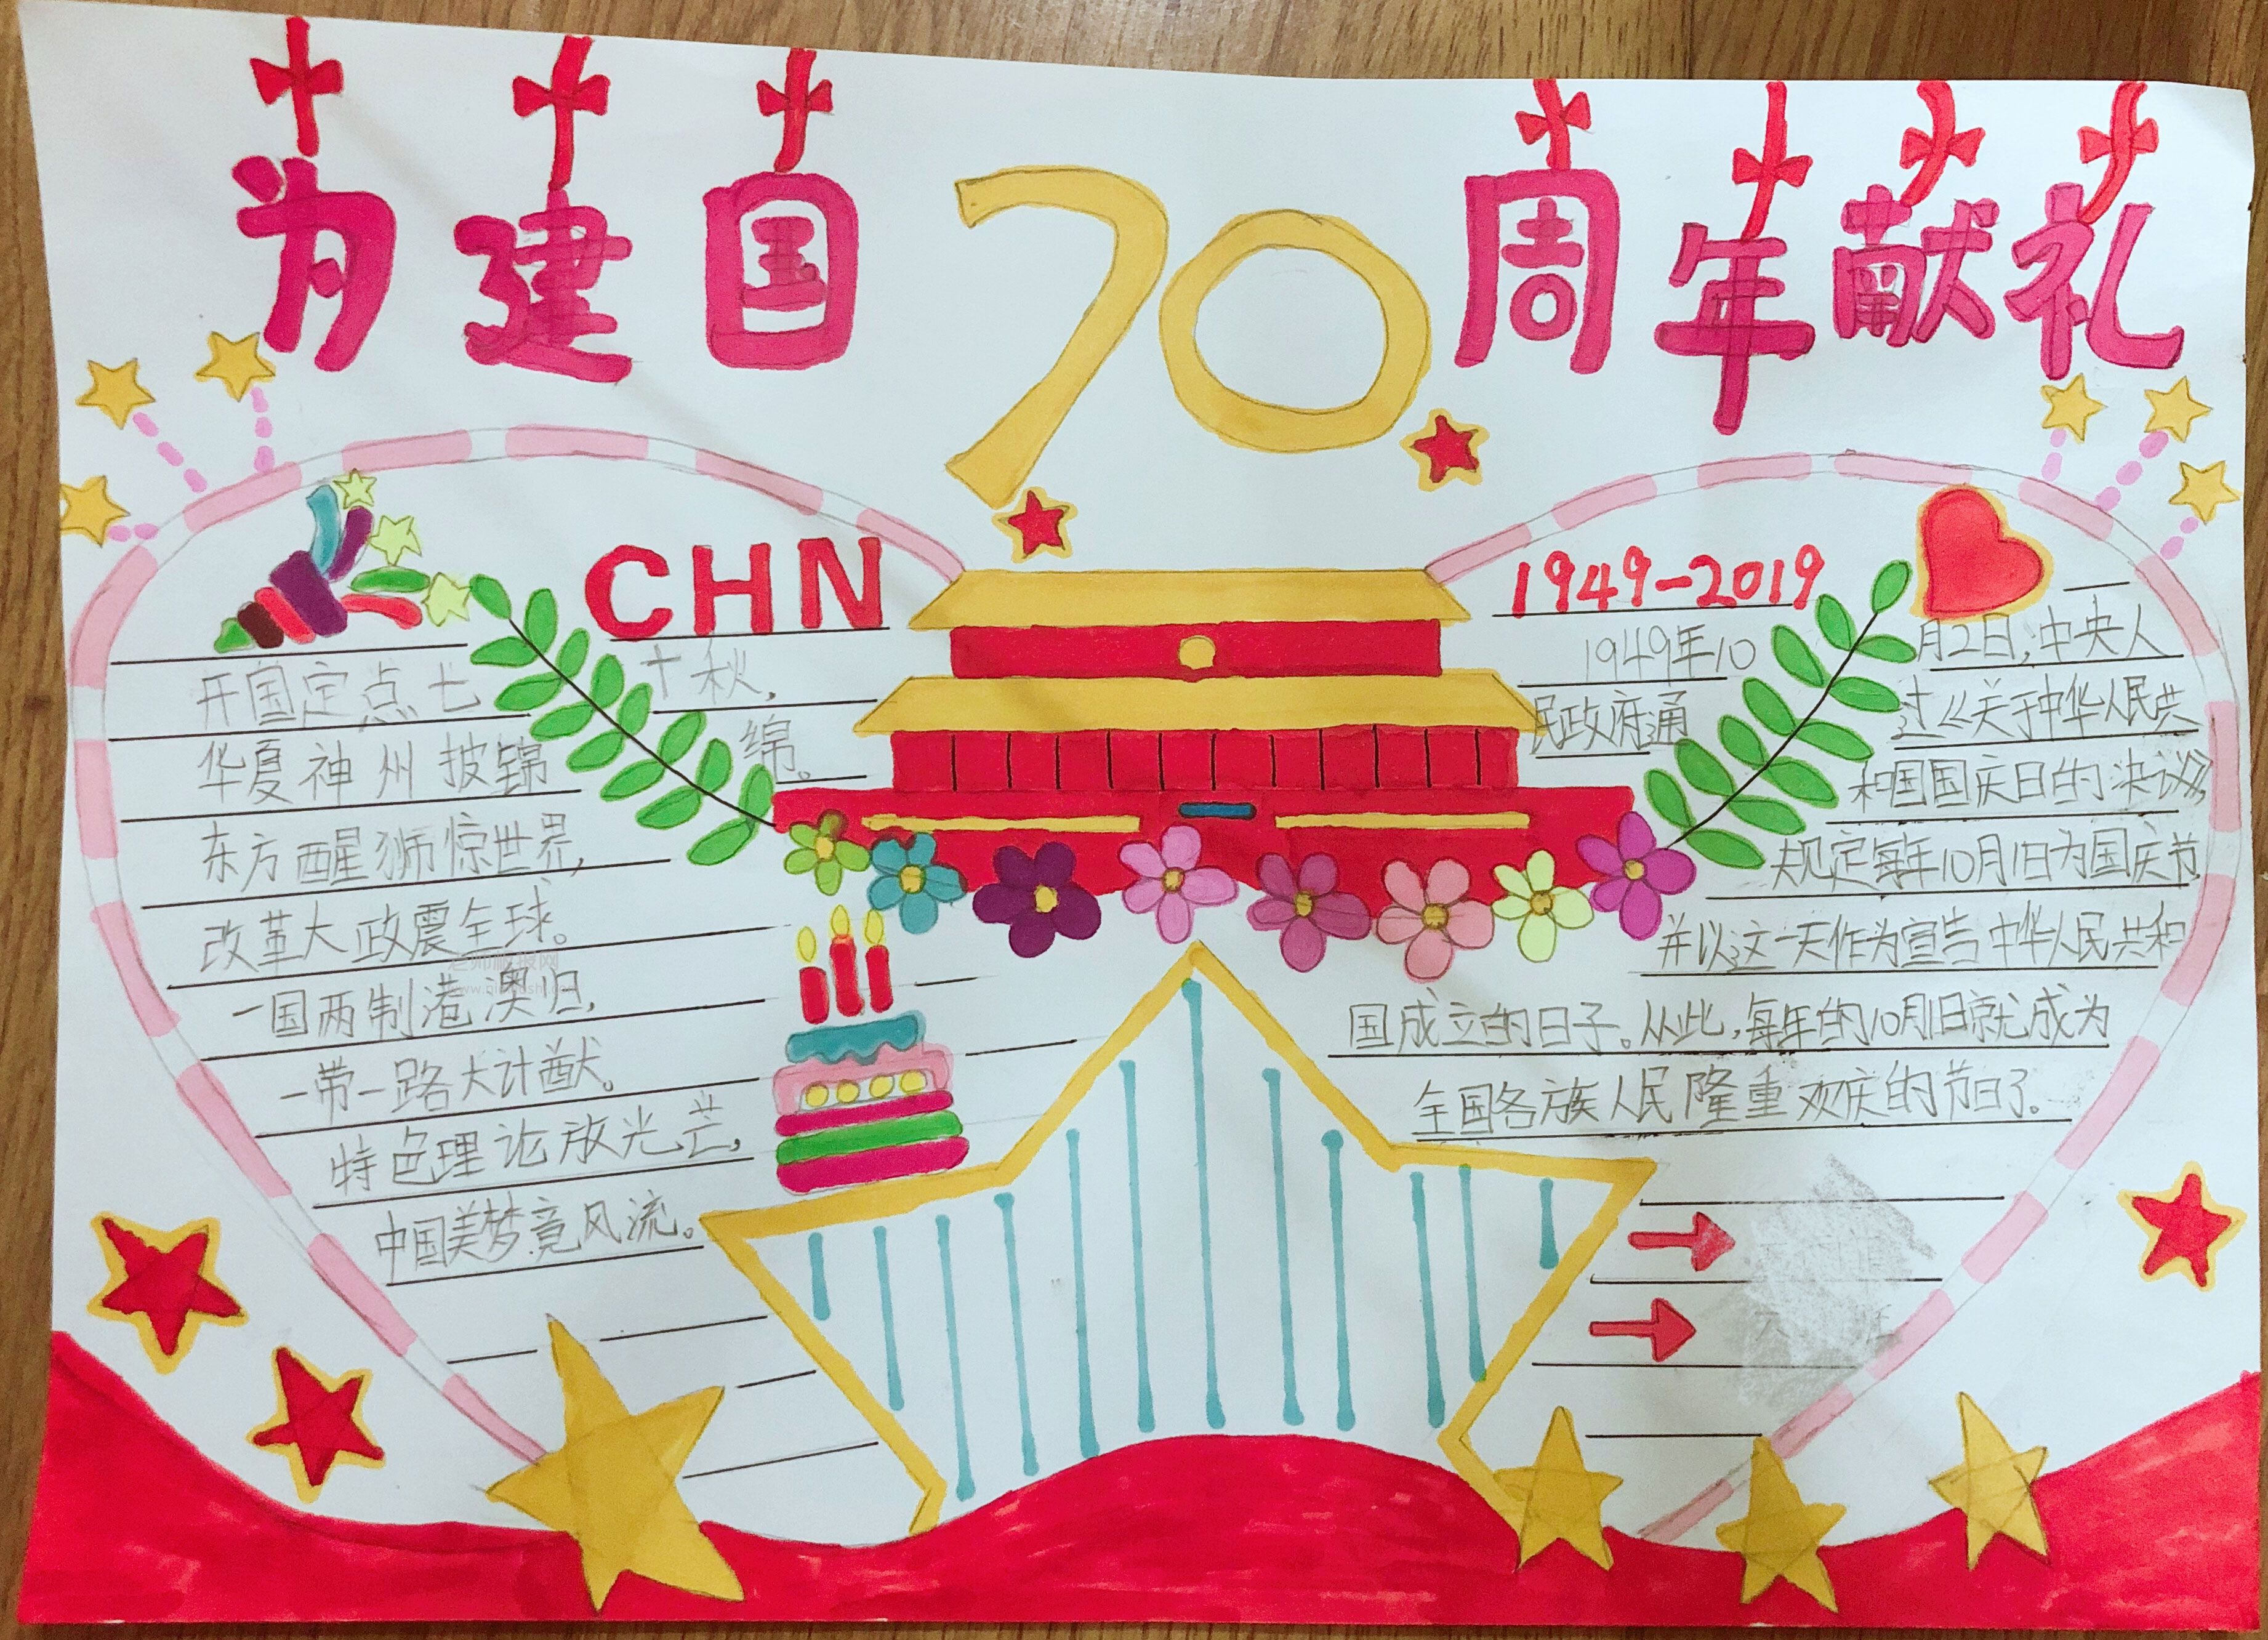 为建国70周年献礼
CHN
开国定点七十秋,
华夏神州披锦绵。
东方醒狮惊世界,
改革大政震全球。
一国两制港澳归,
一带一路大计猷。
特色理论放光芒,
中国美梦竟风流。
1949-2019
1949年10月2日,中央人
民政府通过《关于中华人民共
和国国庆日的决议》
规定每年10月1日为国庆节
并以这一天作为宣告中华人民共和
国成立的日子。从此,每年的10月1日就成为
全国各族人民隆重欢庆的节日了。